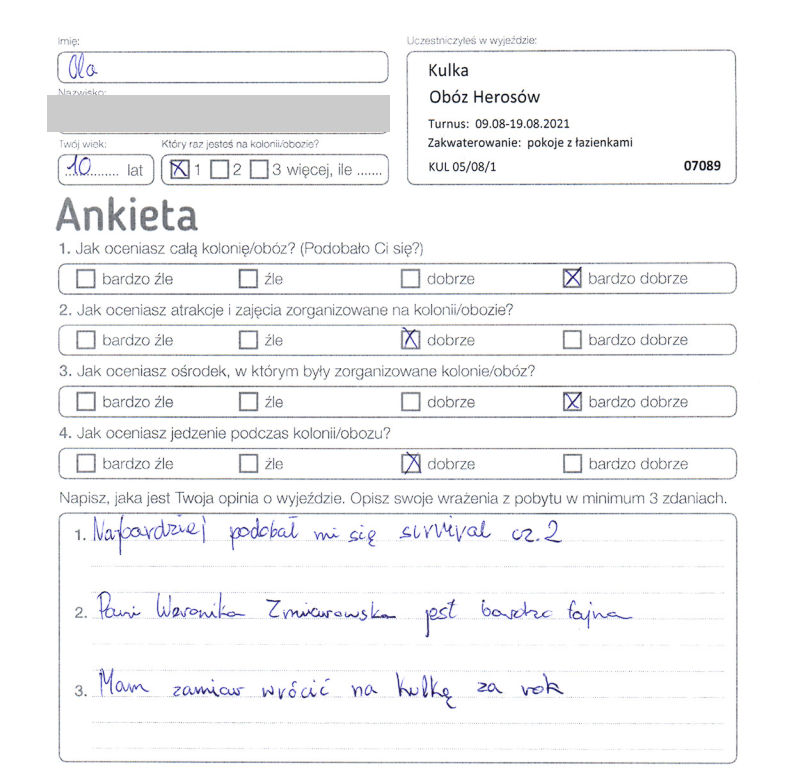 Imię:
Ola
Nazwisko:
Twój wiek:
10 lat
Który raz jesteś na kolonii/obozie?
1 2 3 więcej, ile .......
Uczestniczyłeś w wyjeździe:
Kulka
Obóz Herosów
Turnus: 09.08-19.08.2021
Zakwaterowanie: pokoje z łazienkami
KUL 05/08/1 07089
Ankieta
1. Jak oceniasz całą kolonię/obóz? (Podobało Ci się?)
bardzo źle źle dobrze bardzo dobrze
2. Jak oceniasz atrakcje i zajęcia zorganizowane na kolonii/obozie?
bardzo źle źle dobrze bardzo dobrze
3. Jak oceniasz ośrodek, w którym były zorganizowane kolonie/obóz?
bardzo źle źle dobrze bardzo dobrze
4. Jak oceniasz jedzenie podczas kolonii/obozu?
bardzo źle źle dobrze bardzo dobrze
Napisz, jaka jest Twoja opinia o wyjeździe. Opisz swoje wrażenia z pobytu w minimum 3 zdaniach.
1. Najbardziej podobał mi się survival cz. 2
2. Pani Weronika jest bardzo fajna
3. Mam zamiar wrócić na kulkę za rok